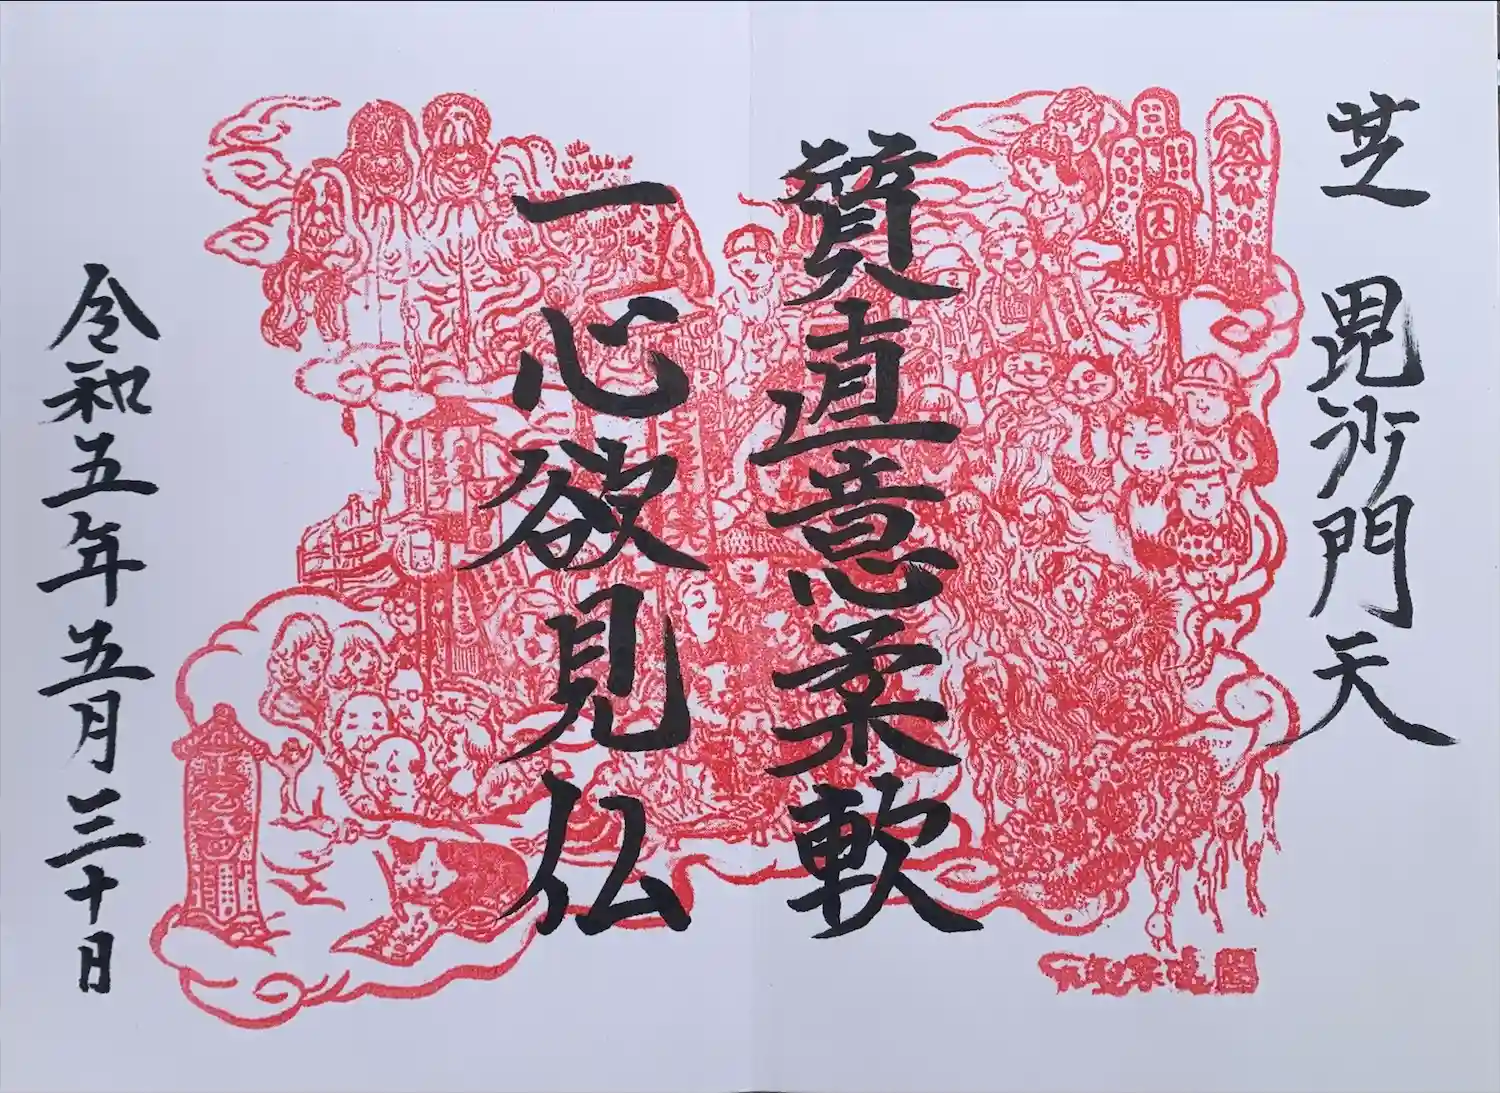 芝 毘沙門天
質直意柔軟
一心欲見仏
令和五年五月三十日